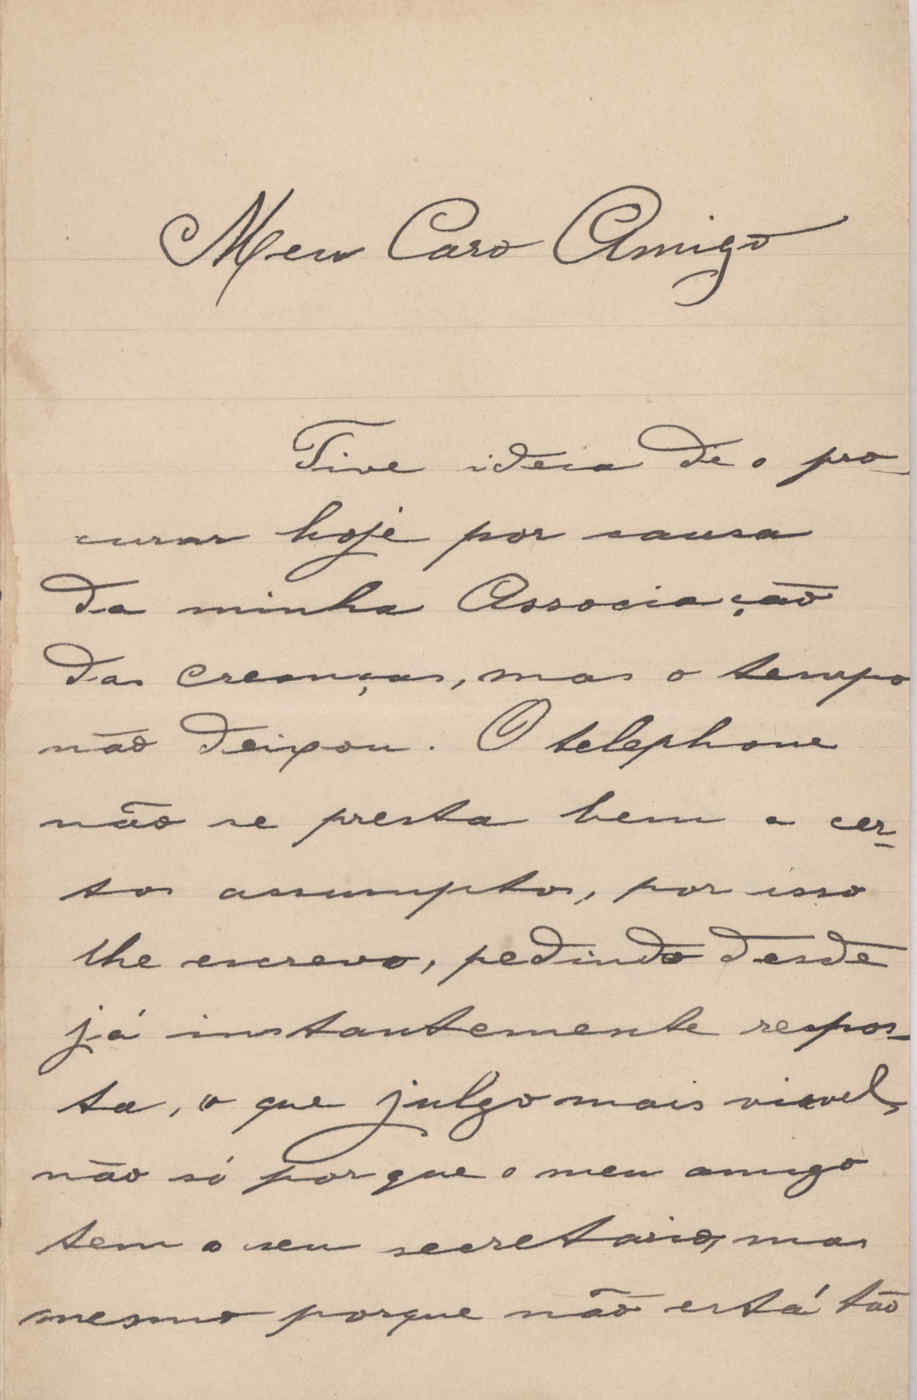 Meu Caro Amigo
Tive ideia de o pro-
curar hoje por causa
da minha Associação
das creanças, mas o tempo
não deixou. O telephone
não se presta bem a cer-
tos assumptos, por isso
lhe escrevo, pedindo desde
já instantemente respos-
ta, o que julgo mais viavel,
não só porque o meu amigo
tem o seu secretario, mas
mesmo porque não está tão